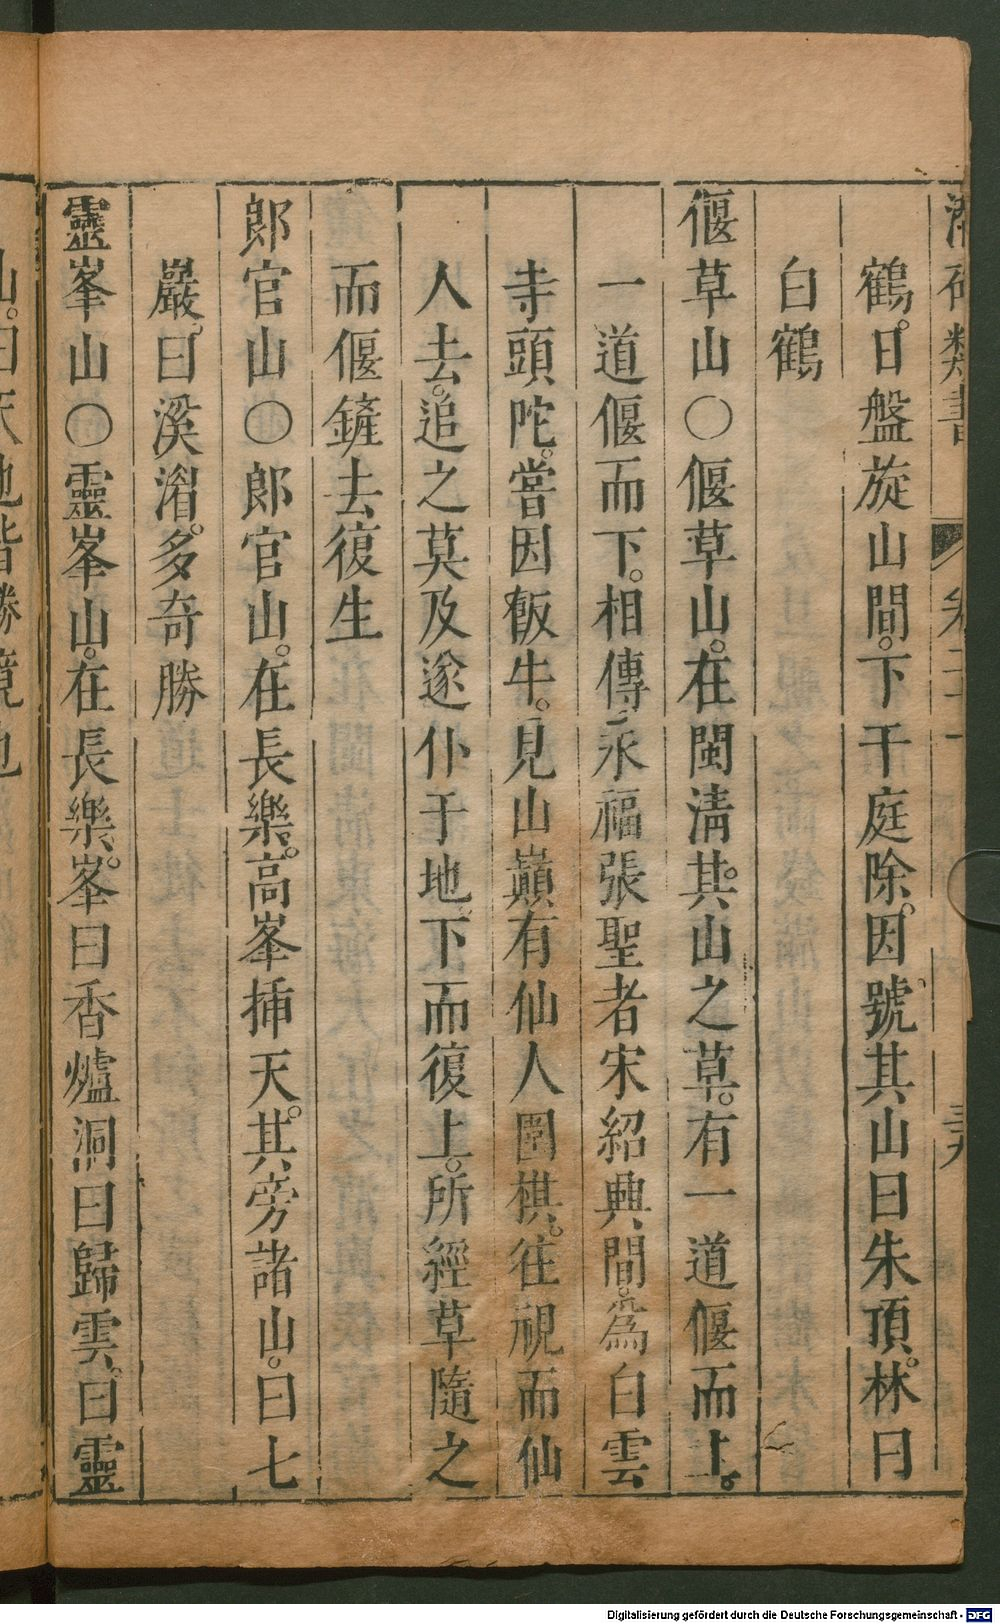 鶴。日盤旋山間。下于庭除。因號其山曰朱頂。林曰
白鶴
偃草山〇偃草山。在閩淸。其山之草。有一道偃而上。
一道偃而下。相傳永福張聖者宋紹興間。爲白雲
寺頭陀。嘗因飯牛。見山巔有仙人圍棋。往視而仙
人去。追之莫及遂仆于地。下而復上。所經草隨之
而偃鏟去復生
郎官山〇郎官山。在長樂。高峯揷天。其旁諸山。曰七
巖。曰溪湄。多奇勝
靈峯山〇靈峯山。在長樂。峯曰香爐洞曰歸雲。曰靈
Digitalisierung gefördert durch die Deutsche Forschungsgemeinschaft - DFG